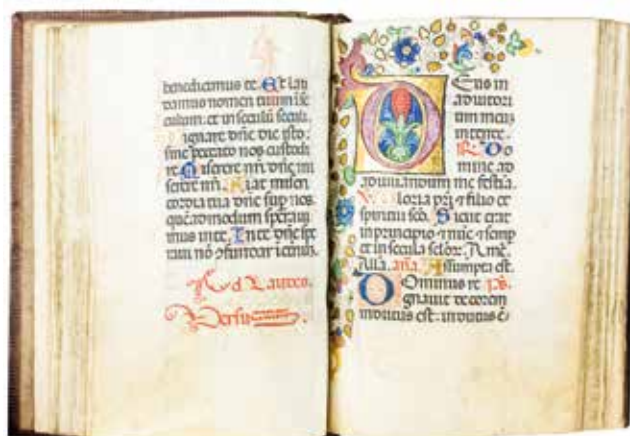 benedicamus te. Et lau
damus nomen tuum i se
culum: et in seculū seculi.
Dignare dñe die isto:
sine peccato nos custodi
re. Miserere nr̄i dñe mi
serere nr̄i. Fiat miseri
cordia tua dñe sup nos.
quēadmodum speraui
mus in te. In te dñe spe
raui nō cōfundar i eternū.
Ad Laudes.
Versus
Deus in
adiutori
um meum
intende.
R. Do
mine ad
adiuuandum me festina.
Gloria pr̄i et filio et
spiritui scō. Sicut erat
in principio et nūc et semp
et in secula sclor̄. Amē.
Alla. aña. Assumpta est.
Dominus re Ps.
gnauit decorem
indutus est: indutus ē